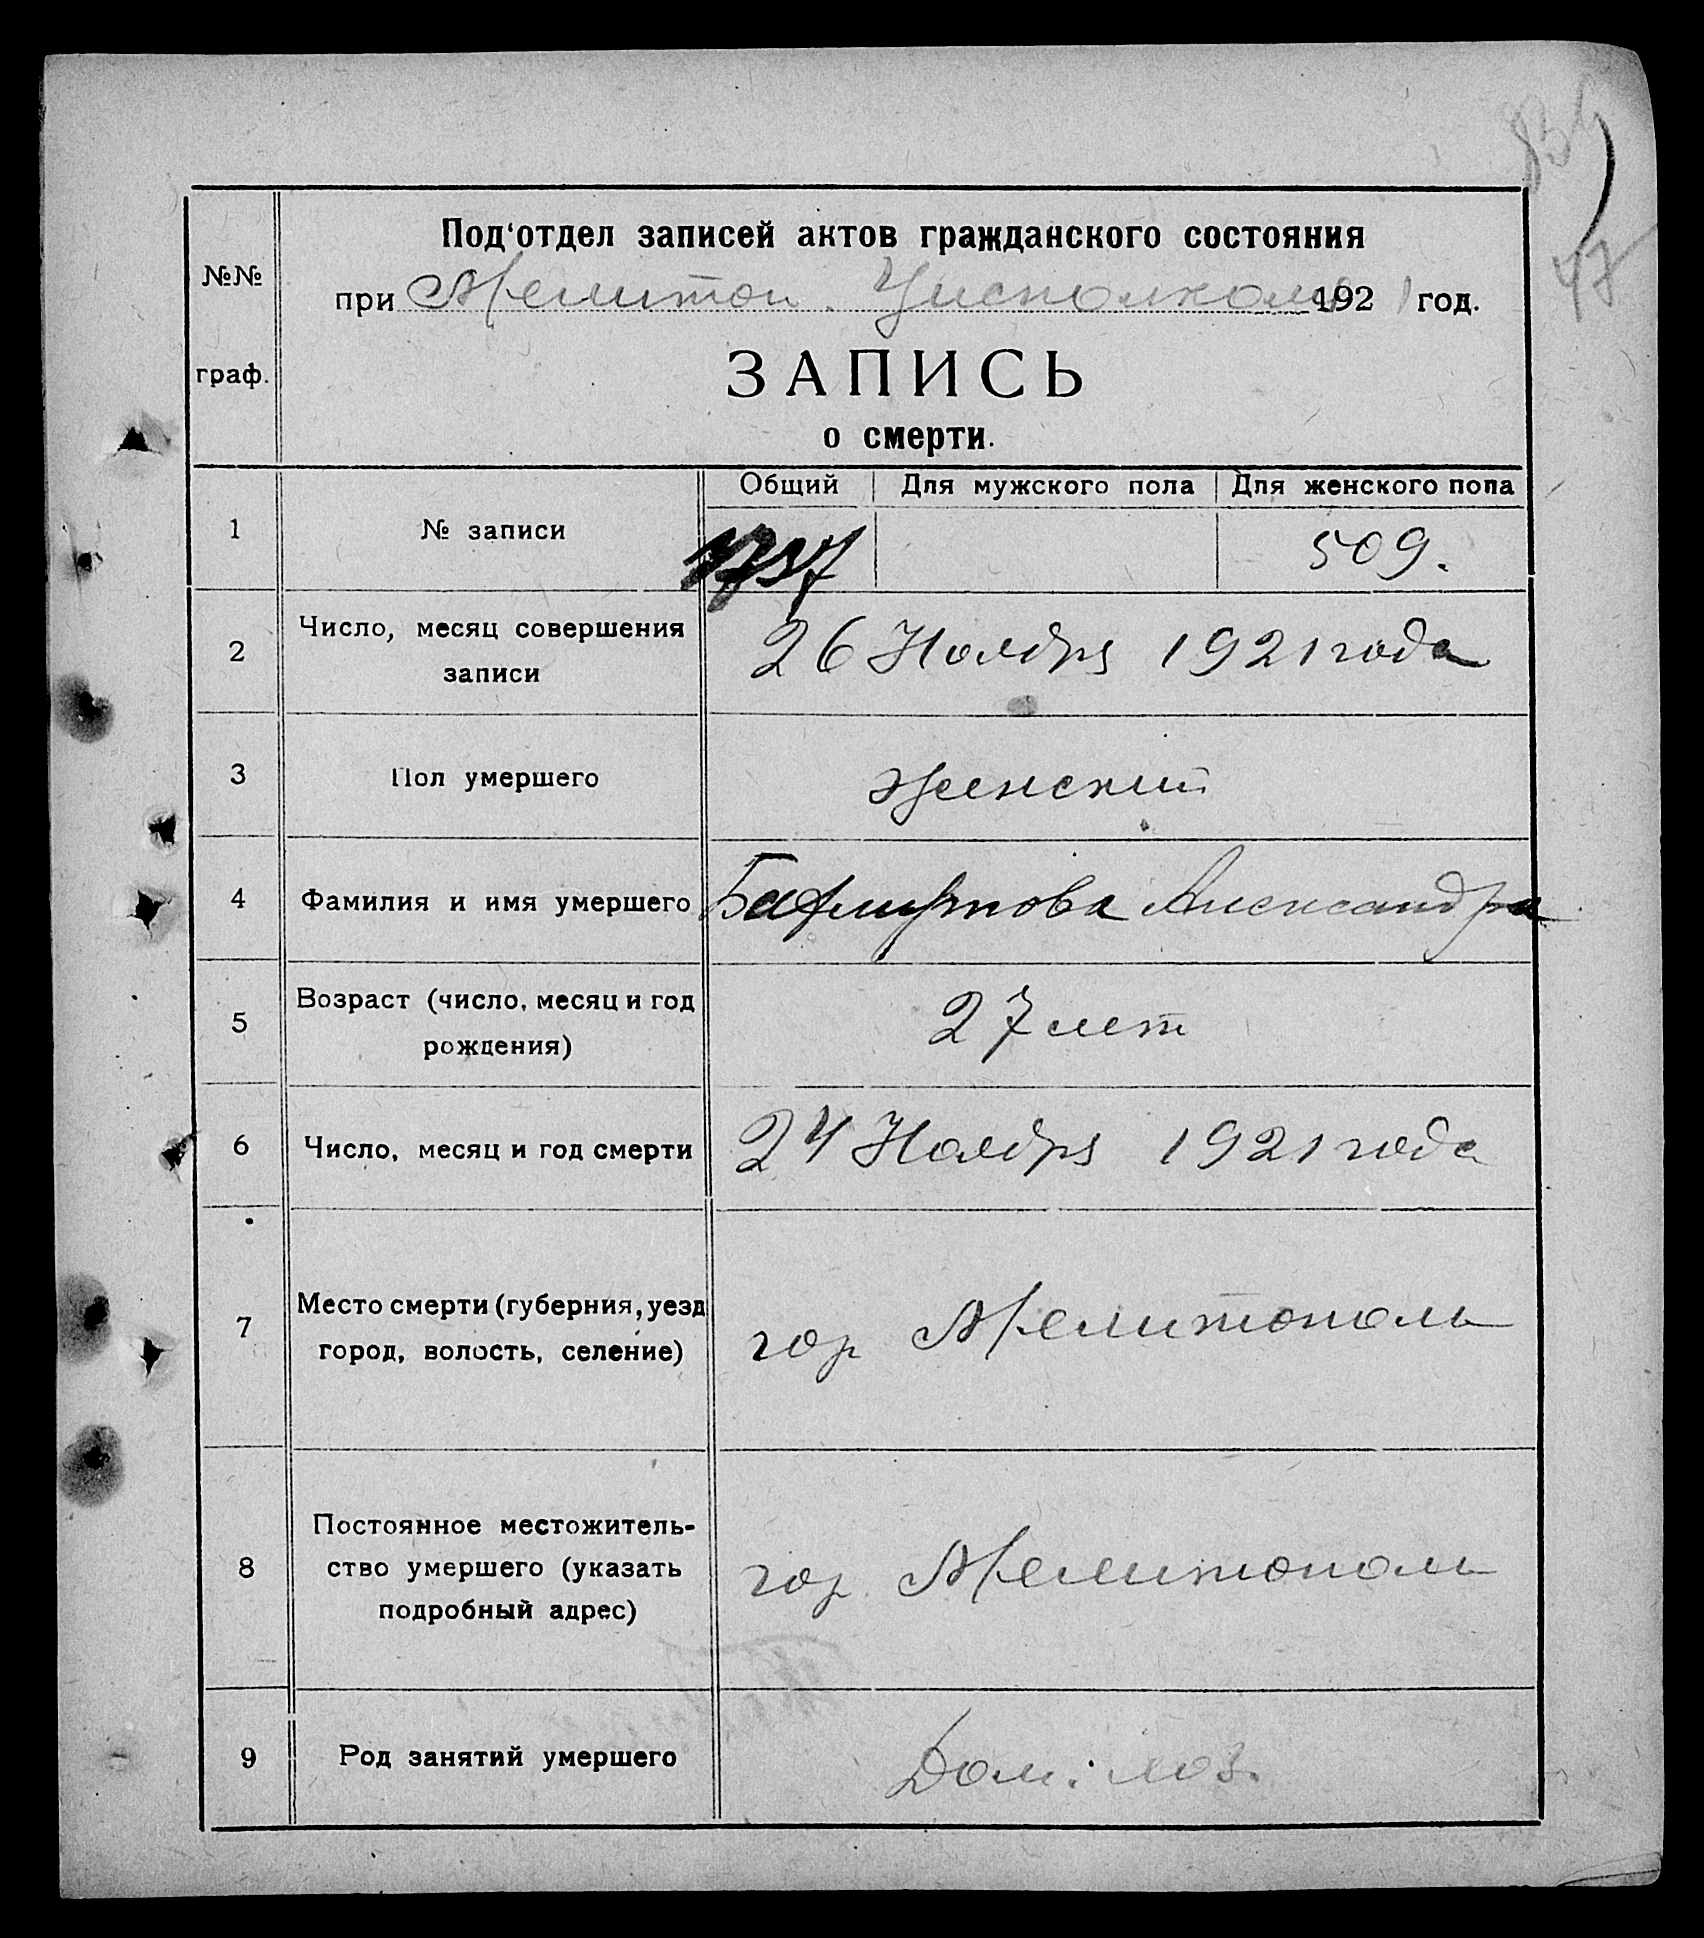 Под‘отдел записей актов гражданского состояния
№№
при Мелитоп. Уисполкоме 1921 год.
граф.
ЗАПИСЬ
о смерти.
Общий Для мужского пола Для женского пола
1 № записи 509.
2 Число, месяц совершения
записи
26 Ноября 1921 года
3 Пол умершего женский
4 Фамилия и имя умершего Александра
5 Возраст (число, месяц и год
рождения)
27 лет
6 Число, месяц и год смерти 24 Ноября 1921 года
7 Место смерти (губерния, уезд
город, волость, селение)
гор Мелитополь
8 Постоянное местожитель-
ство умершего (указать
подробный адрес)
гор. Мелитополь
9 Род занятий умершего Дом. хоз.
47